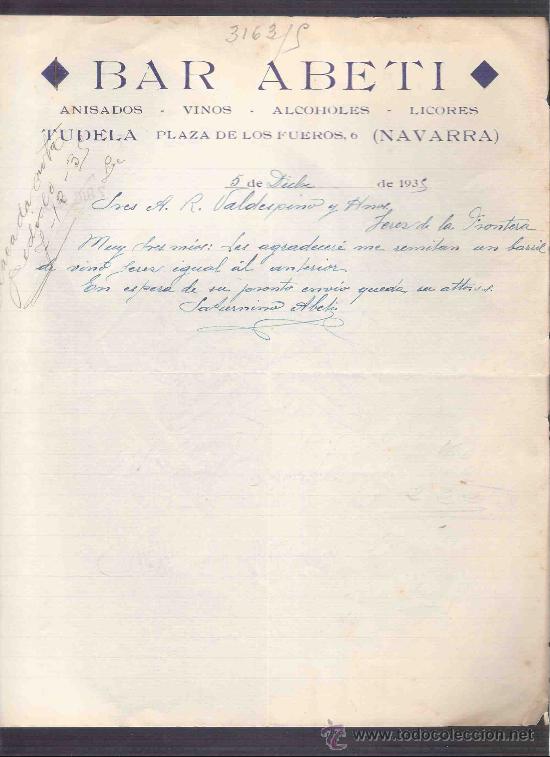 3163/5
BAR ABETI
ANISADOS - VINOS - ALCOHOLES - LICORES
TUDELA PLAZA DE LOS FUEROS, 6 (NAVARRA)
sacada nota
pedido
5 de Dicbe de 1935
Sres A. R. Valdespino y Hnos
Jerez de la Frontera
Muy Sres mios: Les agradeceré me remitan un barril
de vino Jerez igual al anterior.
En espera de su pronto envio queda su atto s.s.
Saturnino Abeti
www.todocoleccion.net